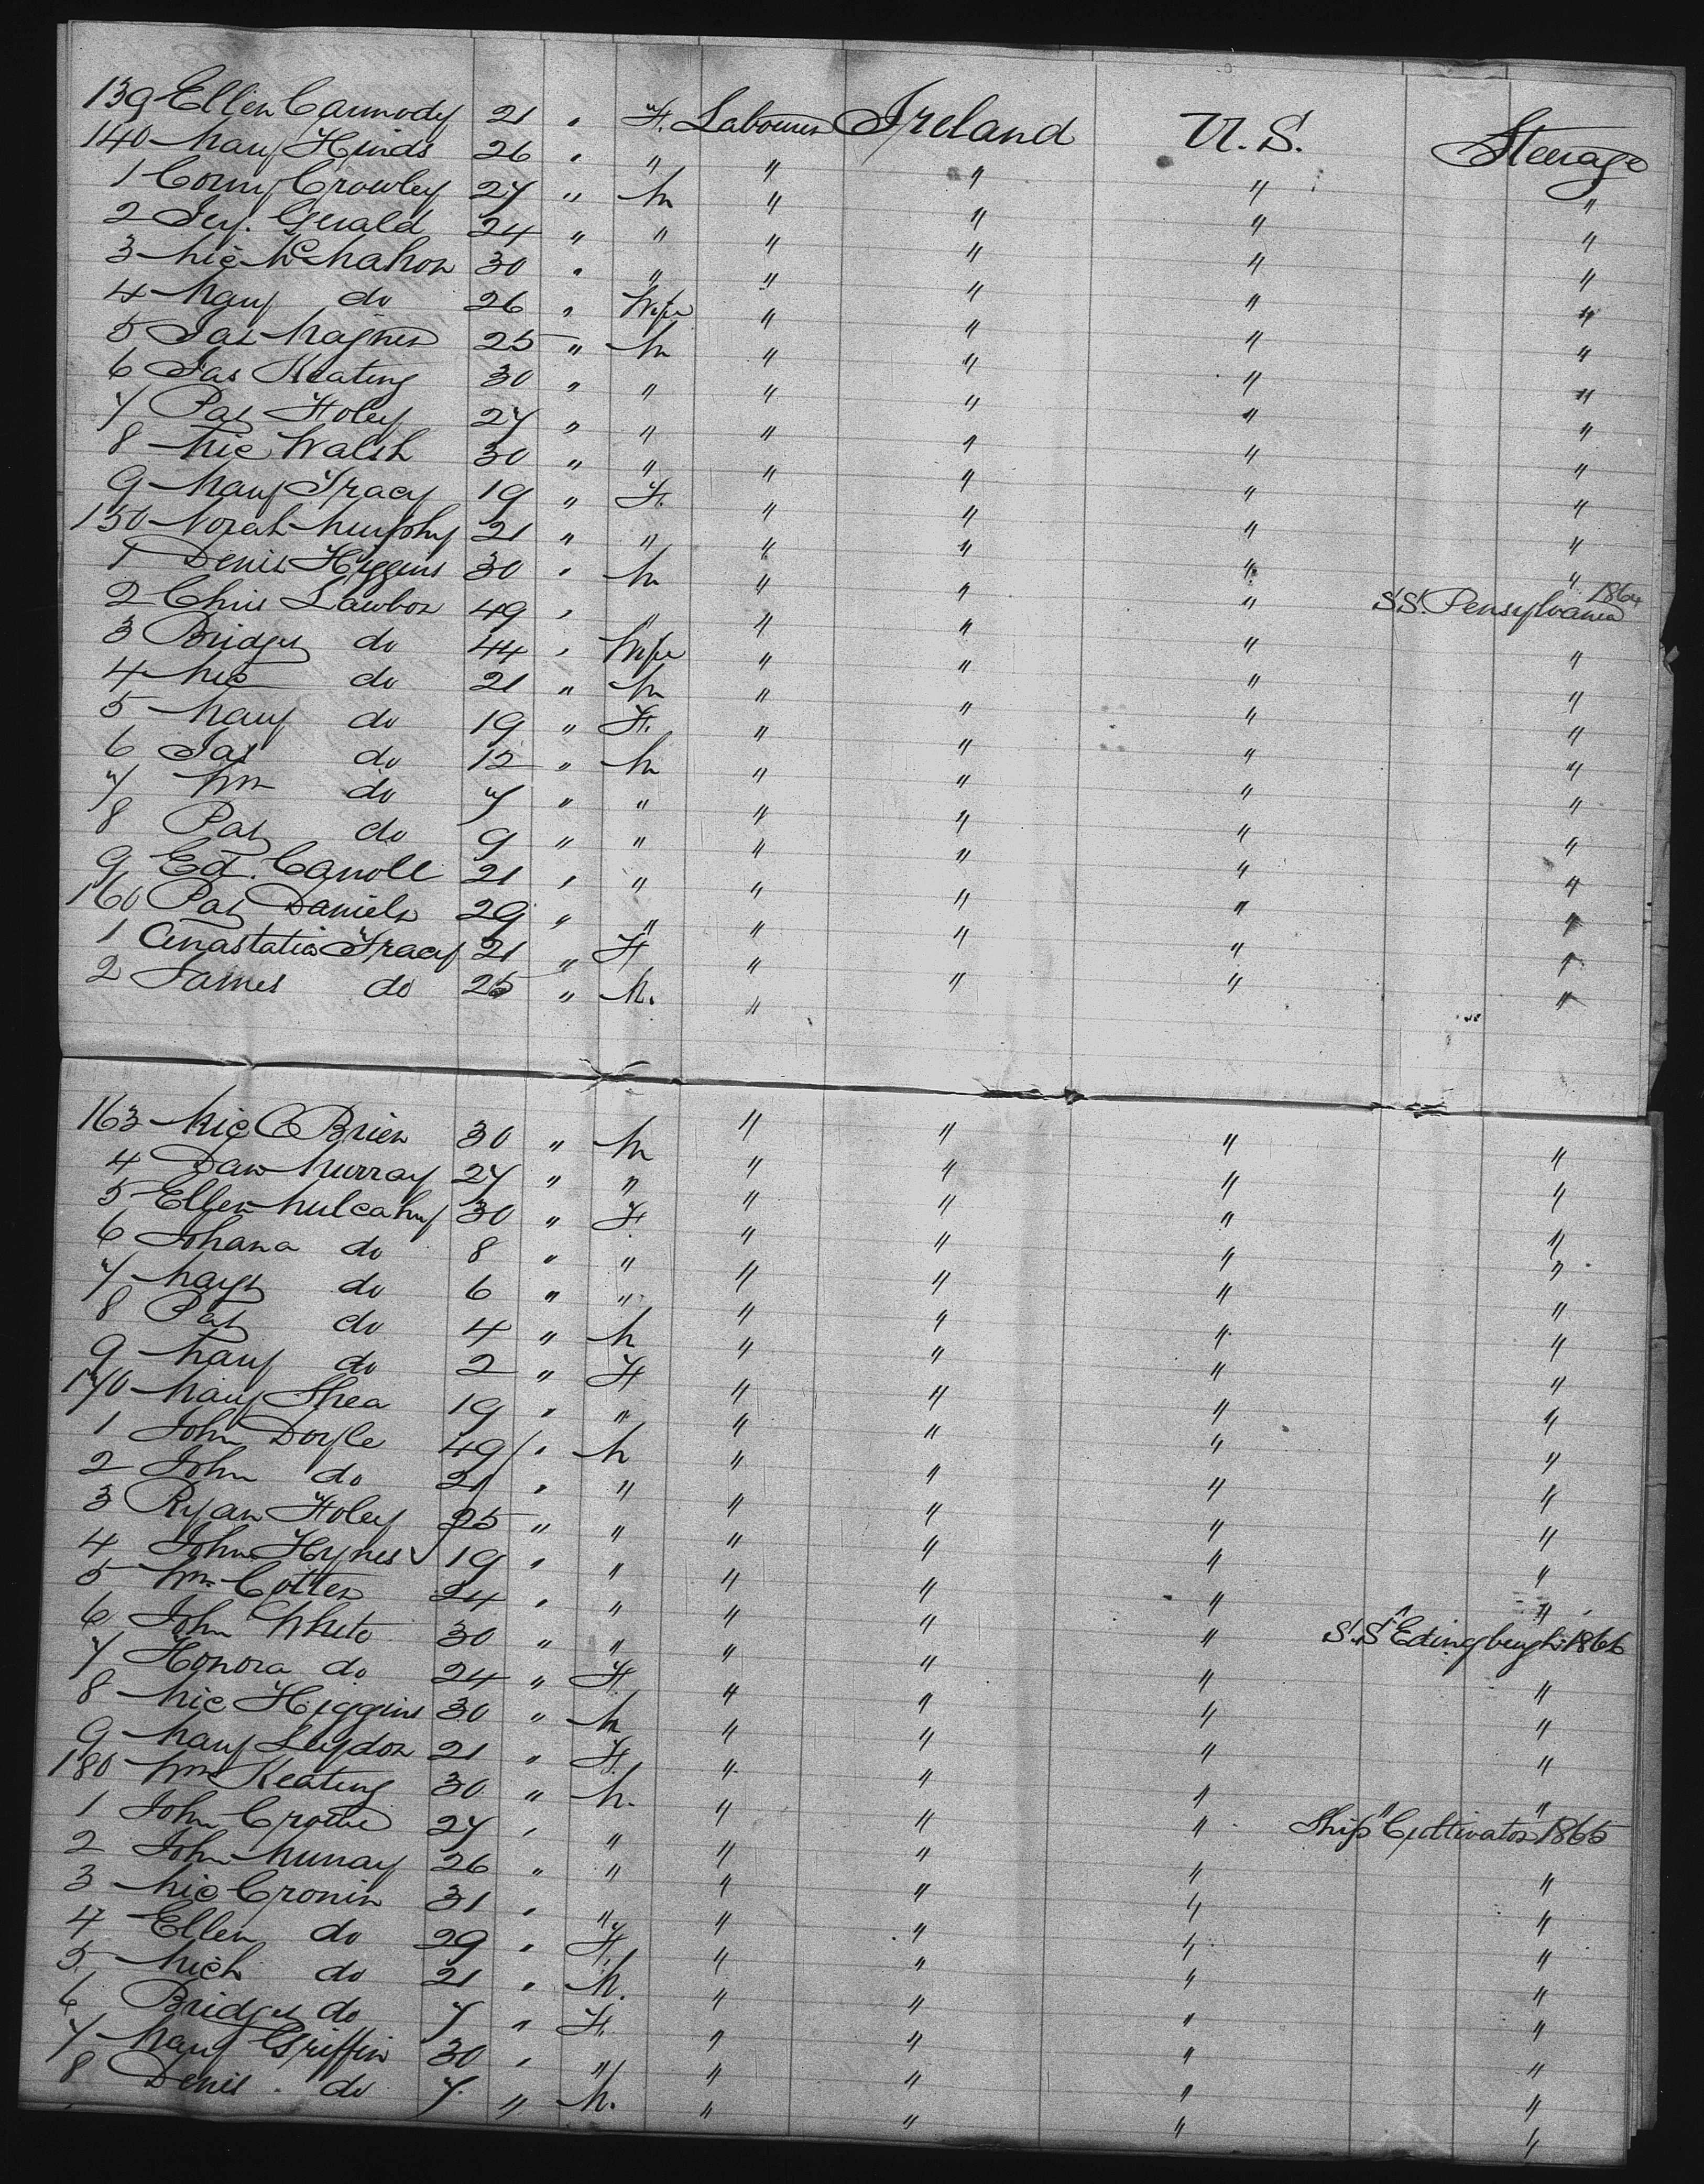 139 Ellen Carmody 21 " F. Labourer Ireland U.S. Steerage
140 Mary Hinds 26 " " " " " "
1 Corny Crowley 27 " M " " " "
2 Jery. Gerald 24 " " " " " "
3 Mic McMahon 30 " " " " " "
4 Mary do 26 " Wife " " " "
5 Jas Magner 25 " M " " " "
6 Jas Keating 30 " " " " " "
7 Pat Foley 27 " " " " " "
8 Mic Walsh 30 " " " " " "
9 Mary Tracy 19 " F. " " " "
150 Norah Murphy 21 " " " " " "
1 Denis Higgins 30 " M " " " "
2 Chris Lawlor 49 " " " " " S.S. Pensylvania 1864
3 Bridget do 44 " Wife " " " "
4 Mic do 21 " M " " " "
5 Mary do 19 " F. " " " "
6 Jas do 12 " M " " " "
7 Wm do 7 " " " " " "
8 Pat do 9 " " " " " "
9 Ed. Carroll 21 " " " " " "
160 Pat Daniels 29 " " " " " "
1 Anastatia Tracy 21 " F " " " "
2 James do 25 " M. " " " "
163 Mic O Brien 30 " M " " " "
4 Dan Murray 27 " " " " " "
5 Ellen Mulcahy 30 " F " " " "
6 Johana do 8 " " " " " "
7 Margt do 6 " " " " " "
8 Pat do 4 " M " " " "
9 Mary do 2 " F " " " "
170 Mary Shea 19 " " " " " "
1 John Doyle 49 " M " " " "
2 John do 21 " " " " " "
3 Ryan Foley 25 " " " " " "
4 John Hynes 19 " " " " " "
5 Wm. Cotter 24 " " " " " "
6 John White 30 " " " " " S.S. "Edingburgh" 1866
7 Honora do 24 " F " " " "
8 Mic Higgins 30 " M " " " "
9 Mary Leydon 21 " F. " " " "
180 Wm Keating 30 " M. " " " "
1 John Crowe 27 " " " " " Ship "Cultivator" 1865
2 John Murray 26 " " " " " "
3 Mic Cronin 31 " " " " " "
4 Ellen do 29 " F. " " " "
5 Mich do 21 " M. " " " "
6 Bridget do 7 " F. " " " "
7 Mary Griffin 30 " " " " " "
8 Denis do 7 " M. " " " "